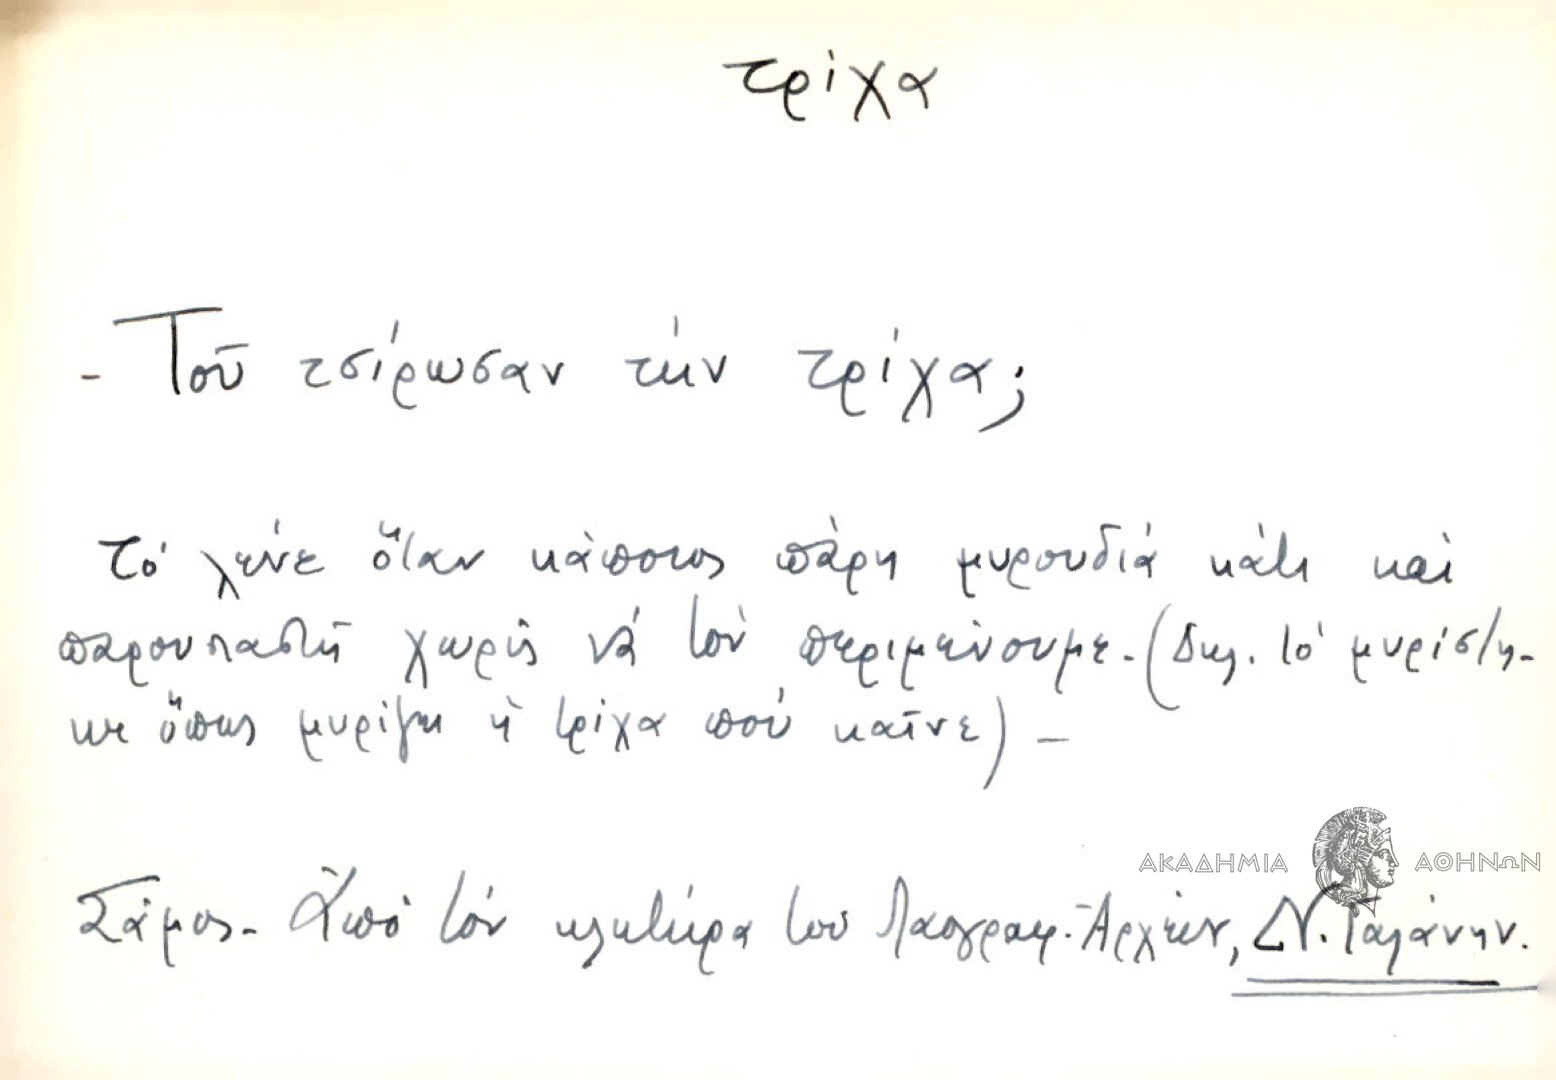 τρίχα
- Τοῦ τσίρωσαν τὴν τρίχα;
Τό λένε ὅταν κάποιος πάρη μυρουδιά κάτι καὶ
παρουσιαστῆ χωρὶς νά τὸν περιμένουμε. (Δηλ. τό μυρίστη-
κε ὅπως μυρίζει ἡ τρίχα πού καῖνε) -
Σάμος - Ἀπό τόν κλητήρα τοῦ Λαογραφ. Ἀρχείου, Δν.
ΑΚΑΔΗΜΙΑ ΑΘΗΝΩΝ